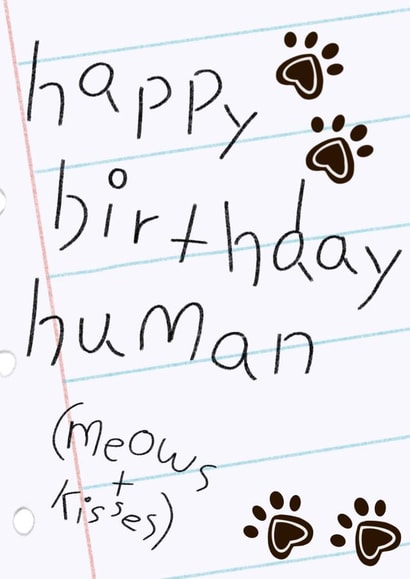 happy
birthday
human
(meows
+
kisses)